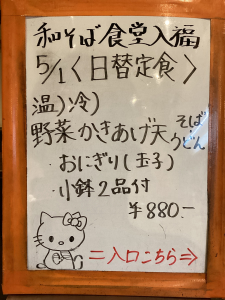 和そば食堂入福
5/1〈日替定食〉
温)冷)
野菜かきあげ天そばうどん
・おにぎり(玉子)
・小鉢2品付
¥880.-
=入口こちら⇒